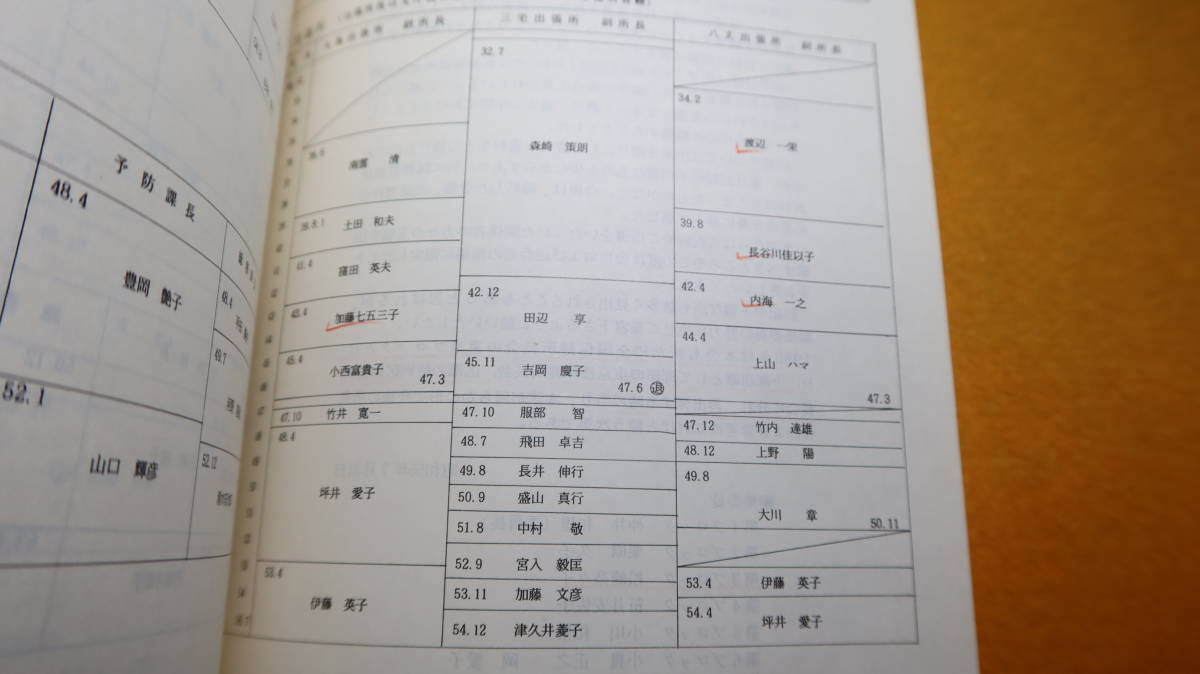 予防課長
48.4
豊岡 艶子
48.4
49.7
52.1
山口 輝彦
52.12
大島出張所 副所長
南雲 清
39.8.1
土田 和夫
41.4
窪田 英夫
43.4
加藤七五三子
45.4
小西富貴子
47.3
47.10 竹井 寛一
48.4
坪井 愛子
53.4
伊藤 英子
三宅出張所 副所長
32.7
森崎 策朗
42.12
田辺 享
45.11
吉岡 慶子
47.6 退
47.10 服部 智
48.7 飛田 卓吉
49.8 長井 伸行
50.9 盛山 真行
51.8 中村 敬
52.9 宮入 毅匡
53.11 加藤 文彦
54.12 津久井菱子
八丈出張所 副所長
34.2
渡辺 一栄
39.8
長谷川佳以子
42.4
内海 一之
44.4
上山 ハマ
47.3
47.12 竹内 達雄
48.12 上野 陽
49.8
大川 章
50.11
53.4 伊藤 英子
54.4
坪井 愛子